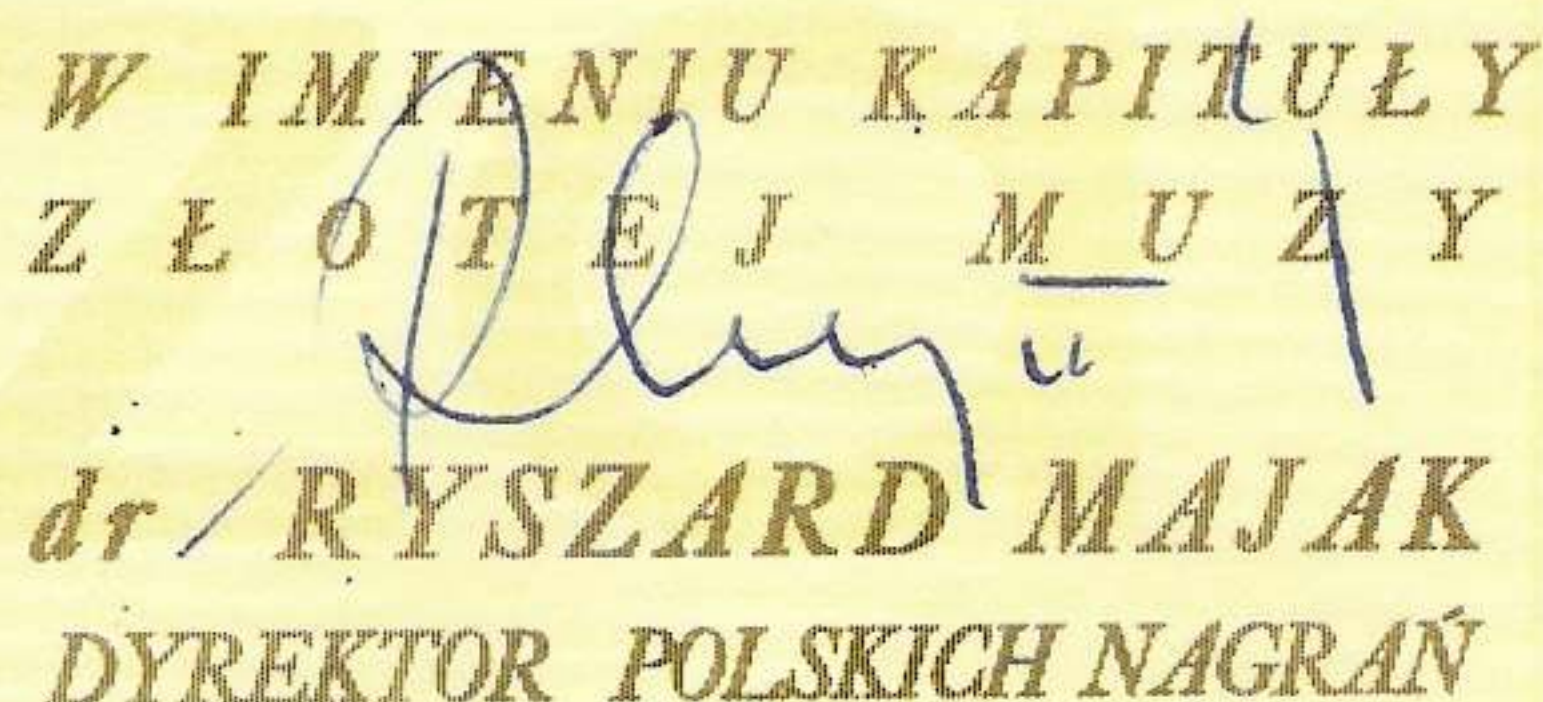 W IMIENIU KAPITUŁY
ZŁOTEJ MUZY
dr RYSZARD MAJAK
DYREKTOR POLSKICH NAGRAŃ